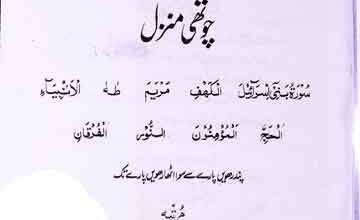 چوتھی منزل
سُوْرَةُ بَنِيْٓ اِسْرَآءِيْلَ اَلْكَهْف مَرْيَمَ طٰهٰ اَلْاَنْۢبِيَآءِ
اَلْحَجِّ اَلْمُؤْمِنُوْنَ اَلنُّوْرِ اَلْفُرْقَانِ
پندرھویں پارے سے سوا اٹھارھویں پارے تک
مرتبہ